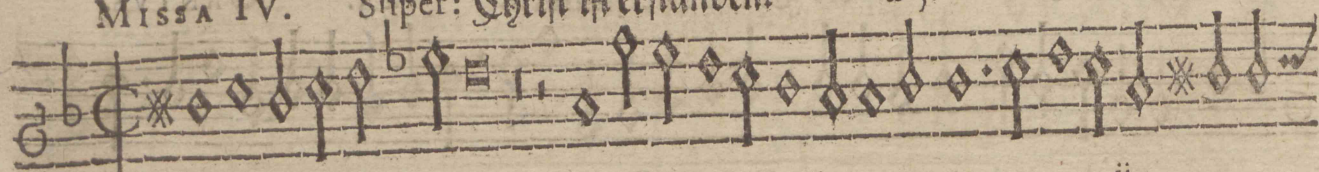 MISSA IV. Super: Christ ist erstanden.